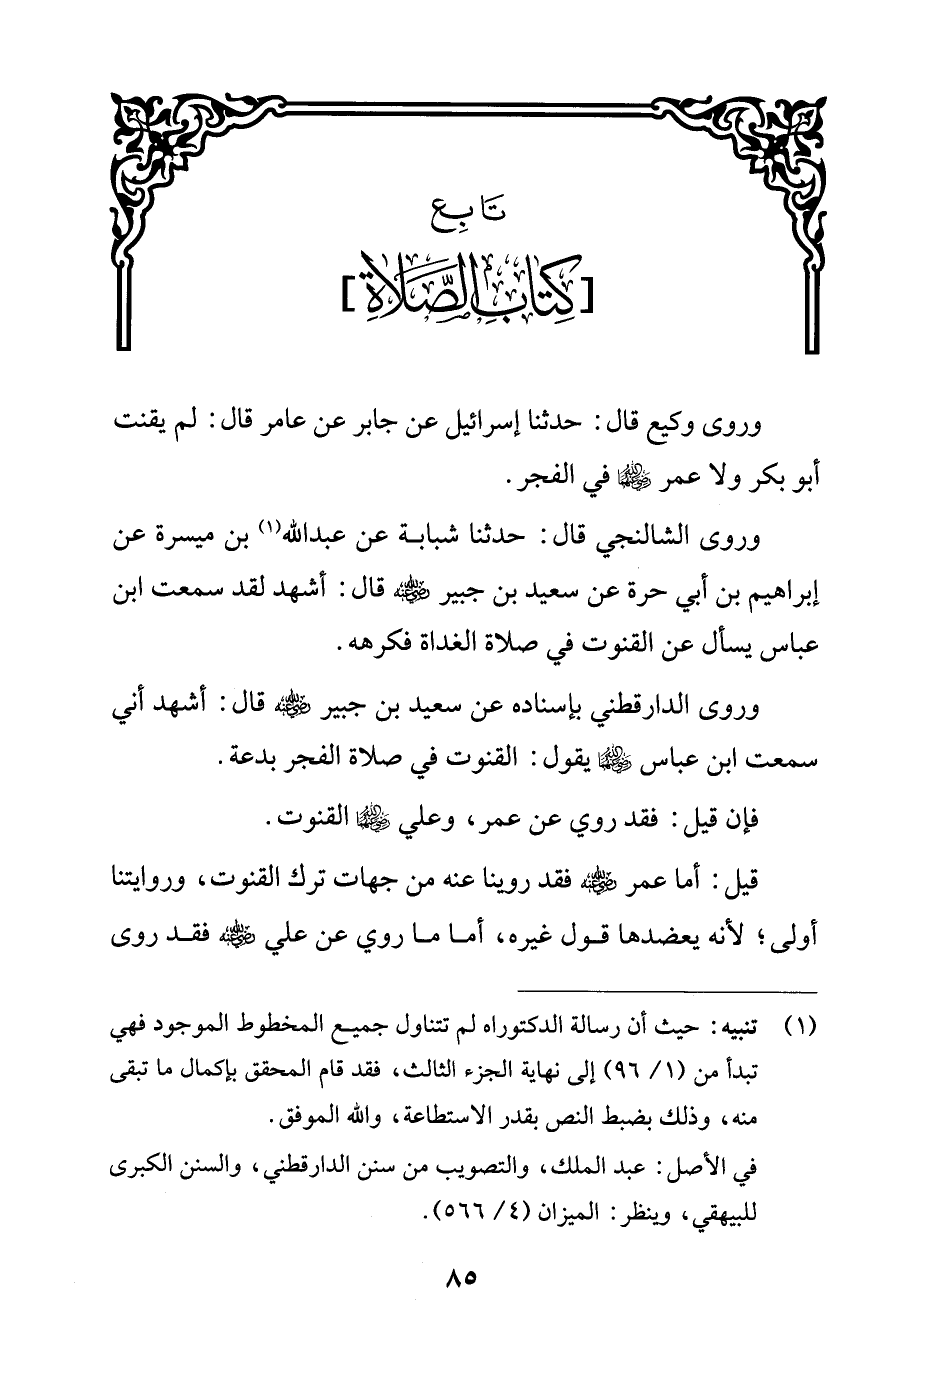 تابع
[كِتَابِ الصَّلَاةِ]
وروى وكيع قال: حدثنا إسرائيل عن جابر عن عامر قال: لم يقنت
أبو بكر ولا عمر رضي الله عنهما في الفجر.
وروى الشالنجي قال: حدثنا شبابة عن عبدالله(١) بن ميسرة عن
إبراهيم بن أبي حرة عن سعيد بن جبير رضي الله عنه قال: أشهد لقد سمعت ابن
عباس يسأل عن القنوت في صلاة الغداة فكرهه.
وروى الدارقطني بإسناده عن سعيد بن جبير رضي الله عنه قال: أشهد أني
سمعت ابن عباس رضي الله عنهما يقول: القنوت في صلاة الفجر بدعة.
فإن قيل: فقد روي عن عمر، وعلي رضي الله عنهما القنوت.
قيل: أما عمر رضي الله عنه فقد روينا عنه من جهات ترك القنوت، وروايتنا
أولى؛ لأنه يعضدها قول غيره، أما ما روي عن علي رضي الله عنه فقد روى
(١) تنبيه: حيث أن رسالة الدكتوراه لم تتناول جميع المخطوط الموجود فهي
تبدأ من (١/ ٩٦) إلى نهاية الجزء الثالث، فقد قام المحقق بإكمال ما تبقى
منه، وذلك بضبط النص بقدر الاستطاعة، والله الموفق.
في الأصل: عبد الملك، والتصويب من سنن الدارقطني، والسنن الكبرى
للبيهقي، وينظر: الميزان (٤/ ٥٦٦).
٨٥